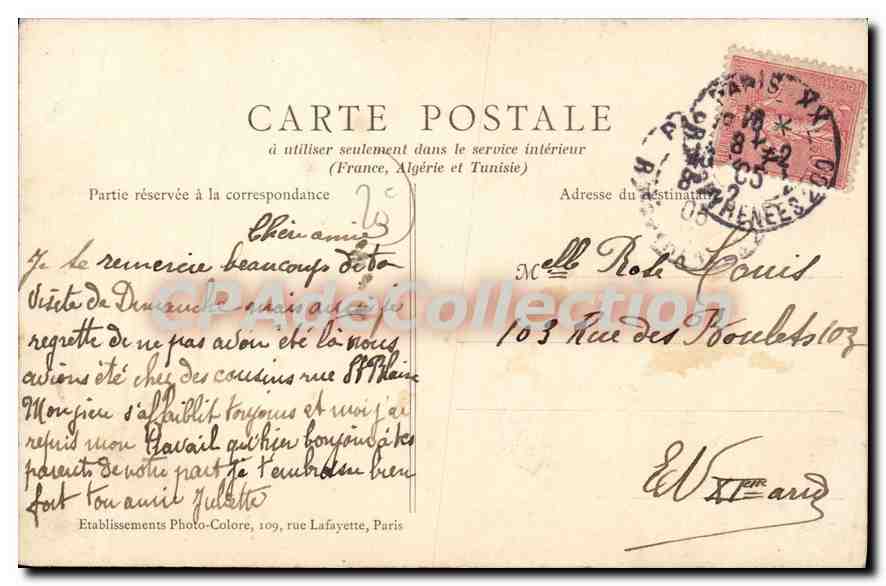 CARTE POSTALE
à utiliser seulement dans le service intérieur
(France, Algérie et Tunisie)
Partie réservée à la correspondance
Adresse du destinataire
Chère amie
Je te remercie beaucoup de ta
visite de Dimanche mais
regrette de ne pas avoir été là nous
avions été chez des cousins rue St Blaise
Mon s'affaiblit toujours et moi j'ai
repris mon travail qu'hier bonjour à tes
parents de notre part je t'embrasse bien
fort ton amie Juliette
Melle Rose Louis
103 Rue des Boulets 103
EV XIeme arrd
PARIS XX
8 - 2
05
R. DES PYRENEES
CPA de Collection
Etablissements Photo-Colore, 109, rue Lafayette, Paris